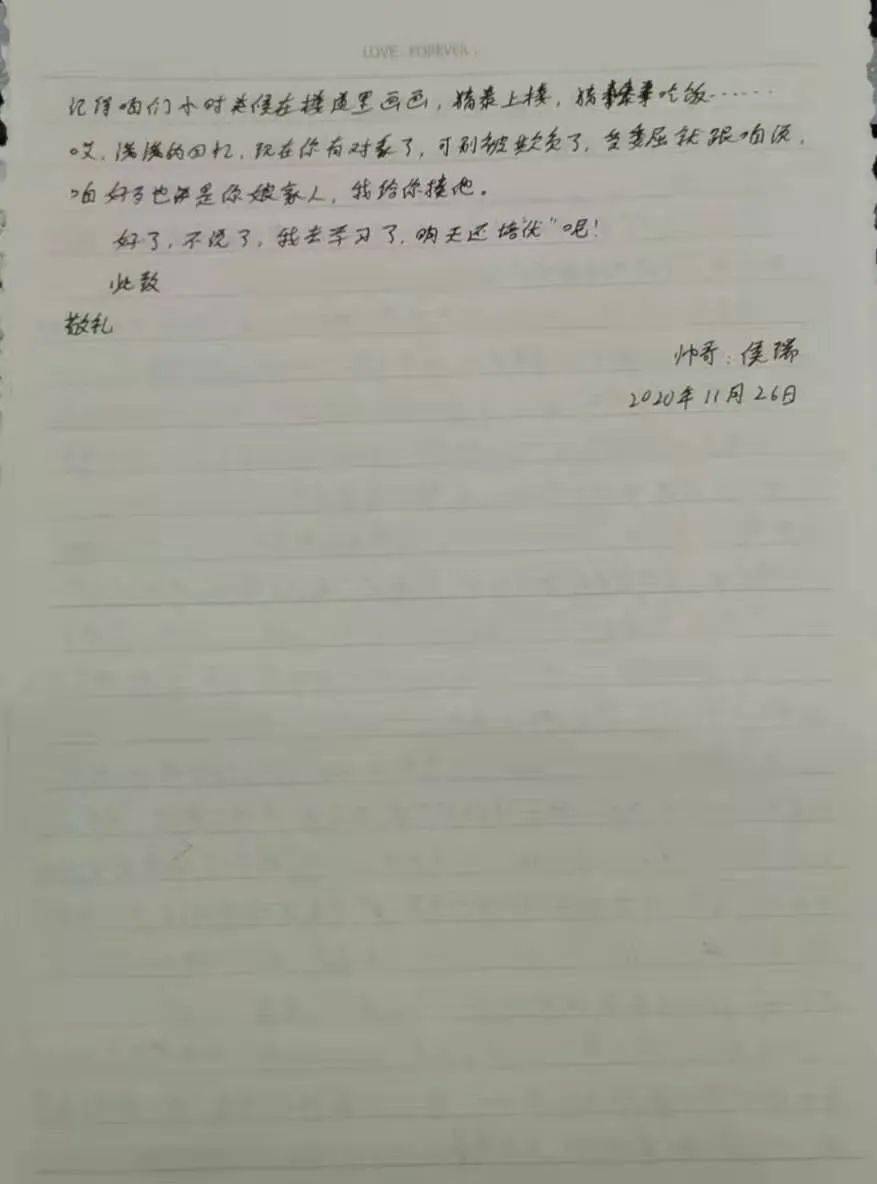 LOVE FOREVER.
记得咱们小时候在楼道里画画,猜拳上楼,猜拳吃饭……
哎,满满的回忆,现在你有对象了,可别被欺负了,受委屈就跟咱说,
咱好歹也算是你娘家人,我给你揍他。
好了,不说了,我去学习了,明天还“培优”呢!
此致
敬礼
帅哥:侯瑞
2020年11月26日